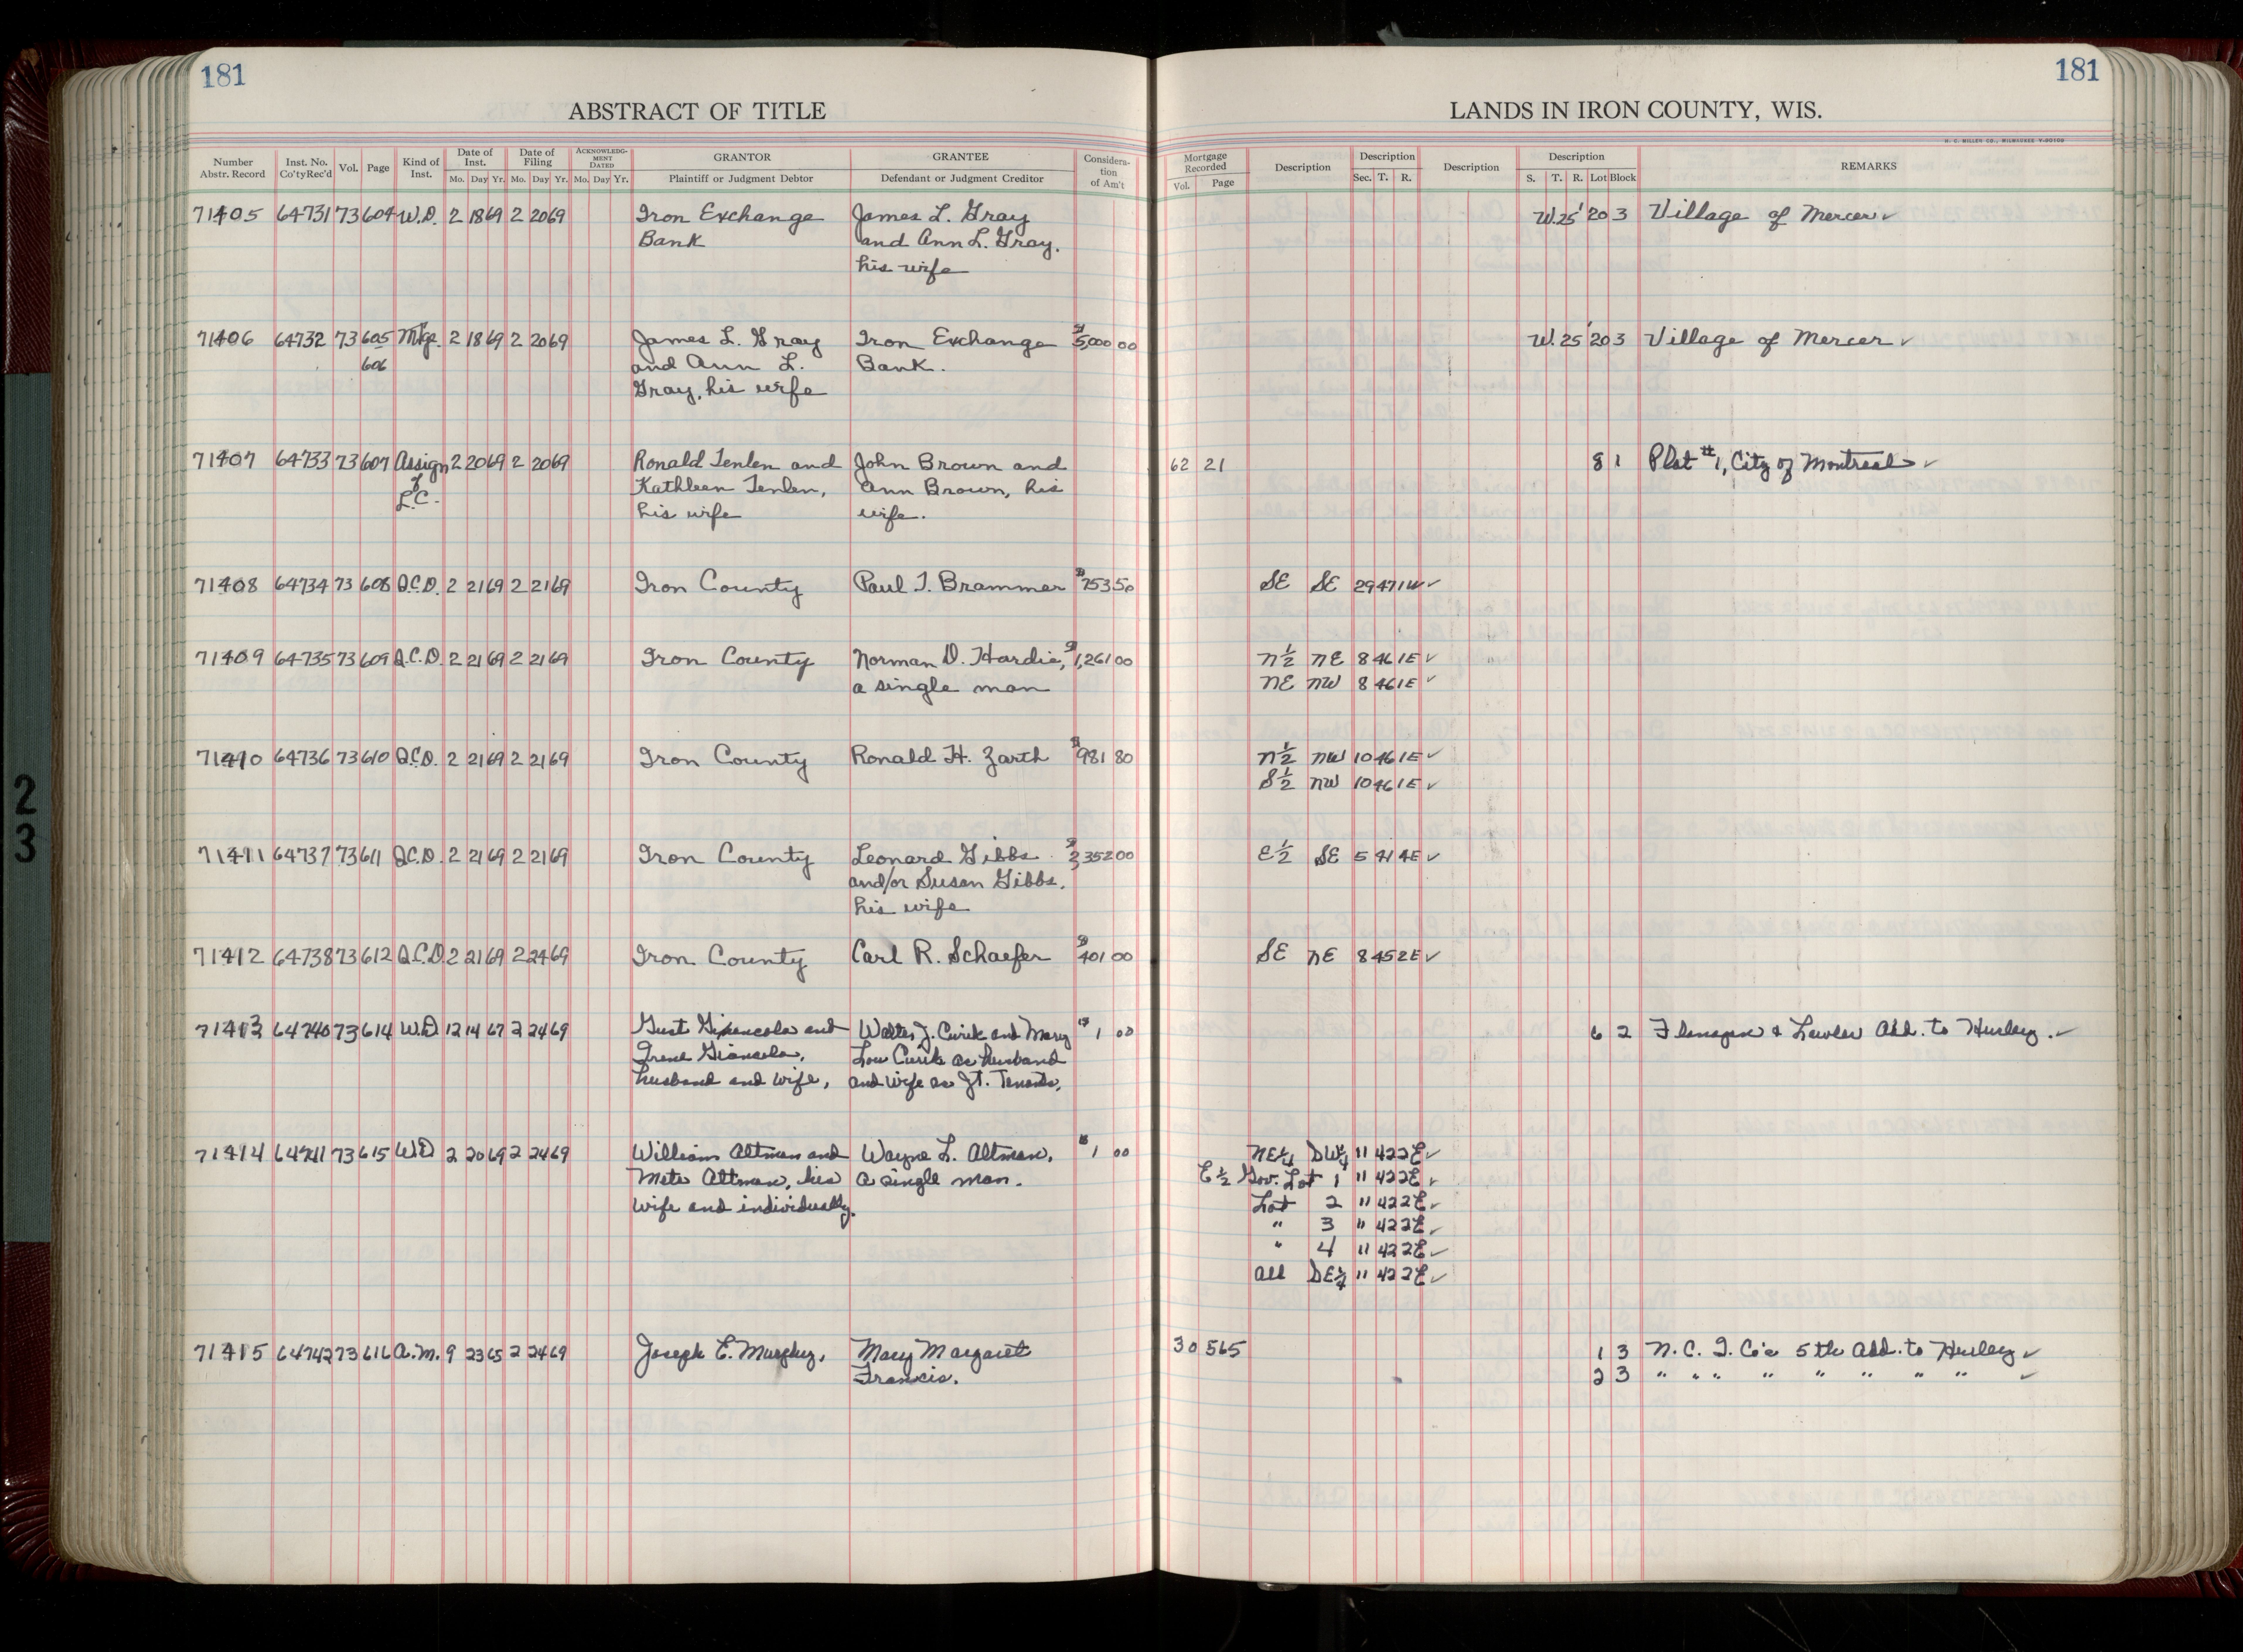 181
181
ABSTRACT OF TITLE
LANDS IN IRON COUNTY, WIS.
H. C. MILLER CO., MILWAUKEE
Number Abstr. Record
Inst. No. Co'ty Rec'd
Vol.
Page
Kind of Inst.
Date of Inst. Mo. Day Yr.
Date of Filing Mo. Day Yr.
ACKNOWLEDG- MENT DATED Mo. Day Yr.
GRANTOR Plaintiff or Judgment Debtor
GRANTEE Defendant or Judgment Creditor
Considera- tion of Am't
Mortgage Recorded Vol. Page
Description
Description Sec. T. R.
Description
Description S. T. R. Lot Block
REMARKS
71405 64731 73 604 W.D. 2 18 69 2 20 69 Iron Exchange James L. Gray W.25' 20 3 Village of Mercer ✓
Bank and Ann L. Gray.
his wife
71406 64732 73 605 Mtge. 2 18 69 2 20 69 James L. Gray Iron Exchange $5,000 00 W.25' 20 3 Village of Mercer ✓
606 and Ann L. Bank.
Gray, his wife
71407 64733 73 607 Assign 2 20 69 2 20 69 Ronald Tenlen and John Brown and 62 21 8 1 Plat #1, City of Montreal ✓
of Kathleen Tenlen, Ann Brown, his
L.C. his wife wife.
71408 64734 73 608 Q.C.D. 2 21 69 2 21 69 Iron County Paul T. Brammer $753 50 SE SE 29 47 1W ✓
71409 64735 73 609 Q.C.D. 2 21 69 2 21 69 Iron County Norman D. Hardie, $1,261 00 N½ NE 8 46 1E ✓
a single man NE NW 8 46 1E ✓
71410 64736 73 610 Q.C.D. 2 21 69 2 21 69 Iron County Ronald H. Zarth $981 80 N½ NW 10 46 1E ✓
S½ NW 10 46 1E ✓
71411 64737 73 611 Q.C.D. 2 21 69 2 21 69 Iron County Leonard Gibbs $2,352 00 E½ SE 5 41 4E ✓
and/or Susan Gibbs.
his wife
71412 64738 73 612 Q.C.D 2 21 69 2 24 69 Iron County Carl R. Schaefer $401 00 SE NE 8 45 2E ✓
71413 64740 73 614 W.D 12 14 67 2 24 69 Gust and Walter J. Curik and Mary $1 00 6 2 Flanagan & Lawler Add. to Hurley. ✓
Irene Giancola, Lou Curik as husband
husband and wife, and wife as Jt. Tenants,
71414 64741 73 615 W.D 2 20 69 2 24 69 William Altman and Wayne L. Altman, $1 00 NE¼ SW¼ 11 42 2E ✓
Meta Altman, his a single man. E½ Gov. Lot 1 11 42 2E ✓
wife and individually. Lot 2 11 42 2E ✓
" 3 11 42 2E ✓
" 4 11 42 2E ✓
All SE¼ 11 42 2E ✓
71415 64742 73 616 A.M. 9 23 65 2 24 69 Joseph E. Murphy, Mary Margaret 30 565 1 3 N. C. I. Co's 5th Add. to Hurley ✓
Francis. 2 3 " " " " " " " " ✓
2
3